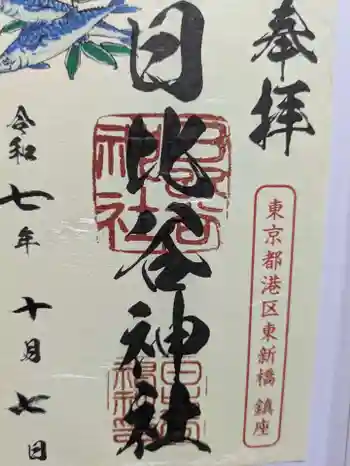 奉拝
東京都港区東新橋 鎮座
日比谷神社
令和七年 十月七日